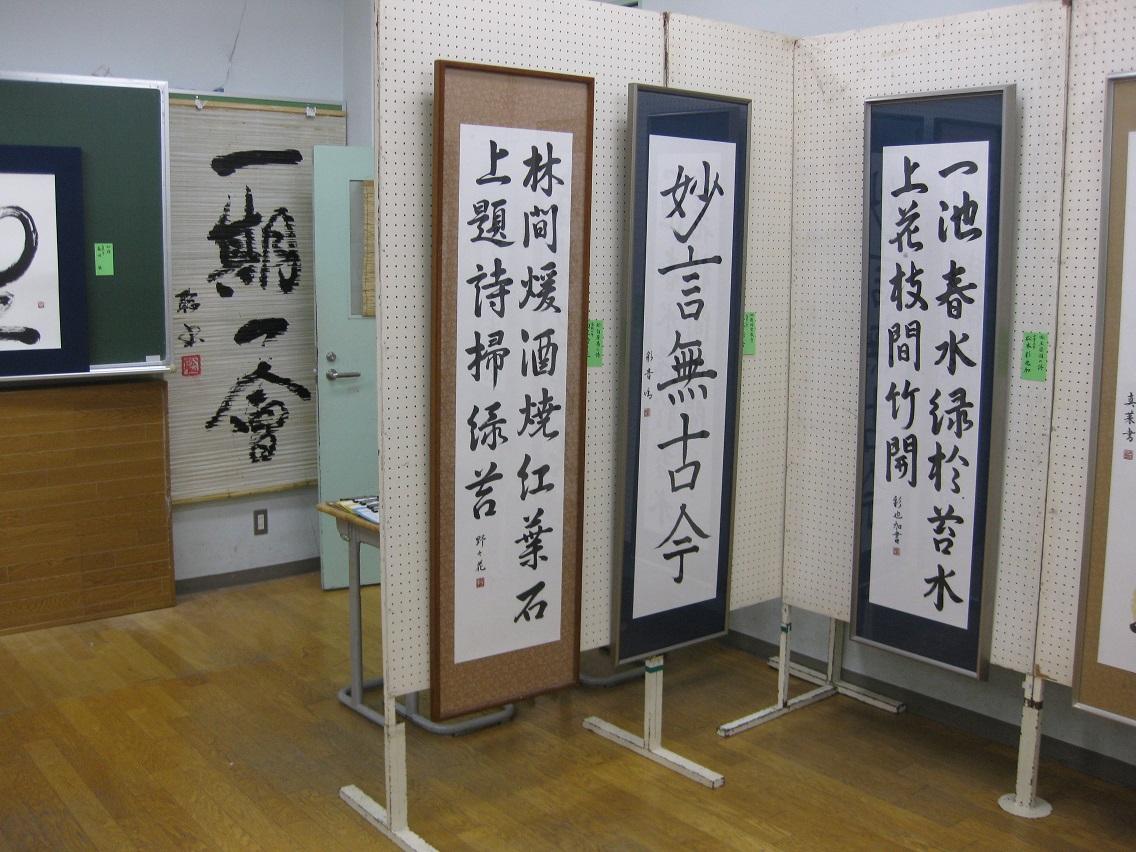 一期一會
林間煖酒焼紅葉石
上題詩掃緑苔
野々花
妙言無古今
一池春水緑於苔水
上花枝間竹開
彩也加書
真葉書